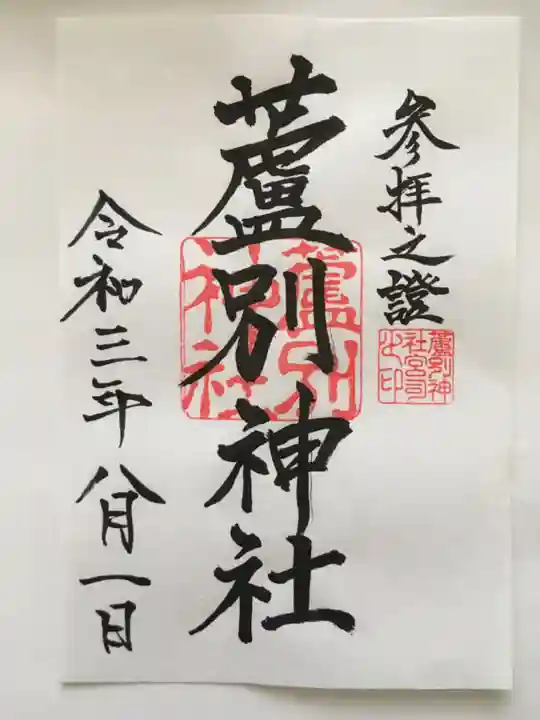 参拝之證
蘆別神
社宮司
之印
蘆別神社
蘆別
神社
令和三年八月一日